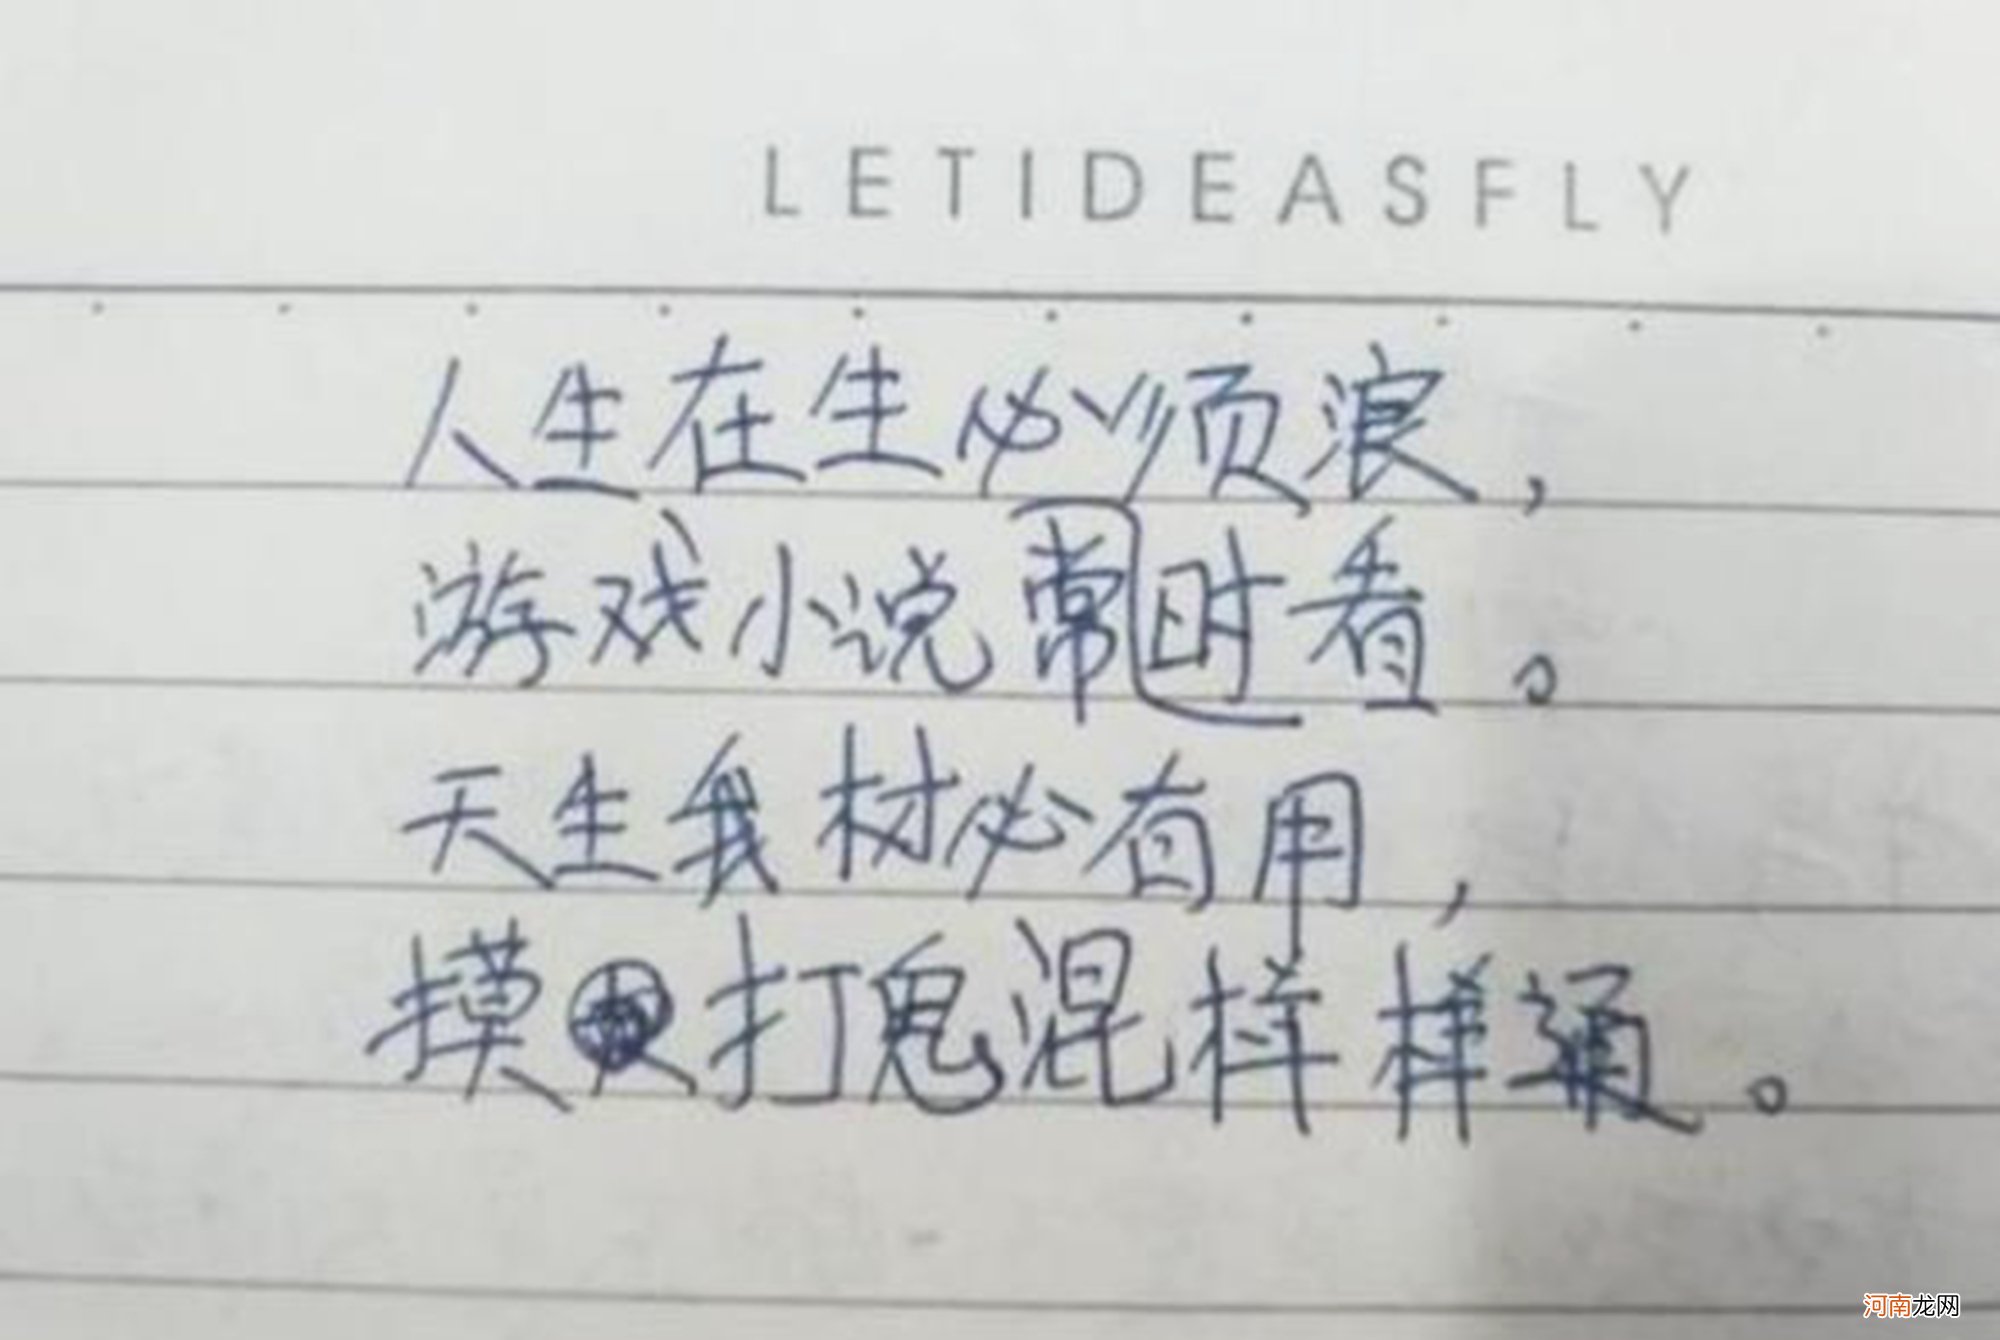 LETIDEASFLY
人生在生必须浪，
游戏小说常时看。
天生我材必有用，
摸打鬼混样样通。
河南龙网